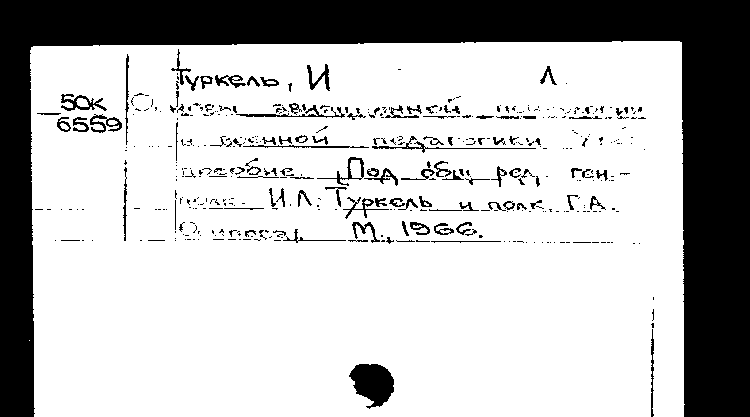 Туркель, И Л.
50К
6559
Основы авиационной психологии
и военной педагогики Уч.
пособие. Под общ ред, ген.-
полк. И.Л. Туркель и полк. Г.А.
М., 1966.